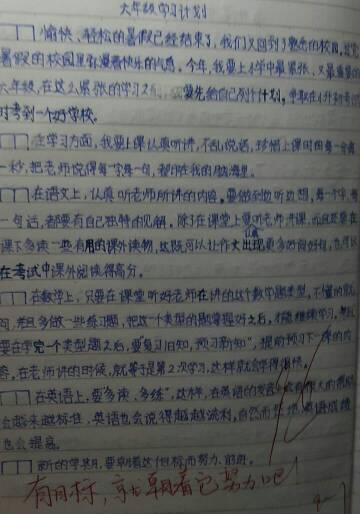 六年级学习计划
愉快、轻松的暑假已经结束了,我们又回到了熟悉的校园,
暑假的校园里弥漫着快乐的气息。今年,我要上小学中最紧张、又最重要的
六年级,在这么紧张的学习之 要先给自己列个计划。争取在小升初考试
时考到一个好学校。
在学习方面,我要上课认真听讲,不乱说话,珍惜上课时的每一分每
一秒,把老师说得每一字每一句,都印在我的脑海里。
在语文上,认真听老师所讲的内容。要做到边听边想,每一个字、每
一句话,都要有自己独特的见解。除了在课堂上要认真听老师讲课,而且还要在
课下多读一些有用的课外读物,这既可以让作文出现更多好词好句,也可以
在考试中课外阅读得高分。
在数学上,只要在课堂听好老师在讲的这个数学题类型,不懂的就
问,并且多做一些练习题,把这一个类型的题掌握好之后,才能继续学习。
要在学完一个类型题之后,要复习旧知,预习新知",提前预习下一课的内
容,在老师讲的时候,就等于是第2次学习,这样就会学得很快。
在英语上,要"多读、多练",这样,在英语的发音
会越来越标准,英语也会说得越来越流利,自然而然地英语成绩
也会提高。
新的学期,要朝着这个目标而努力、前进。
有目标,就朝着它努力吧!